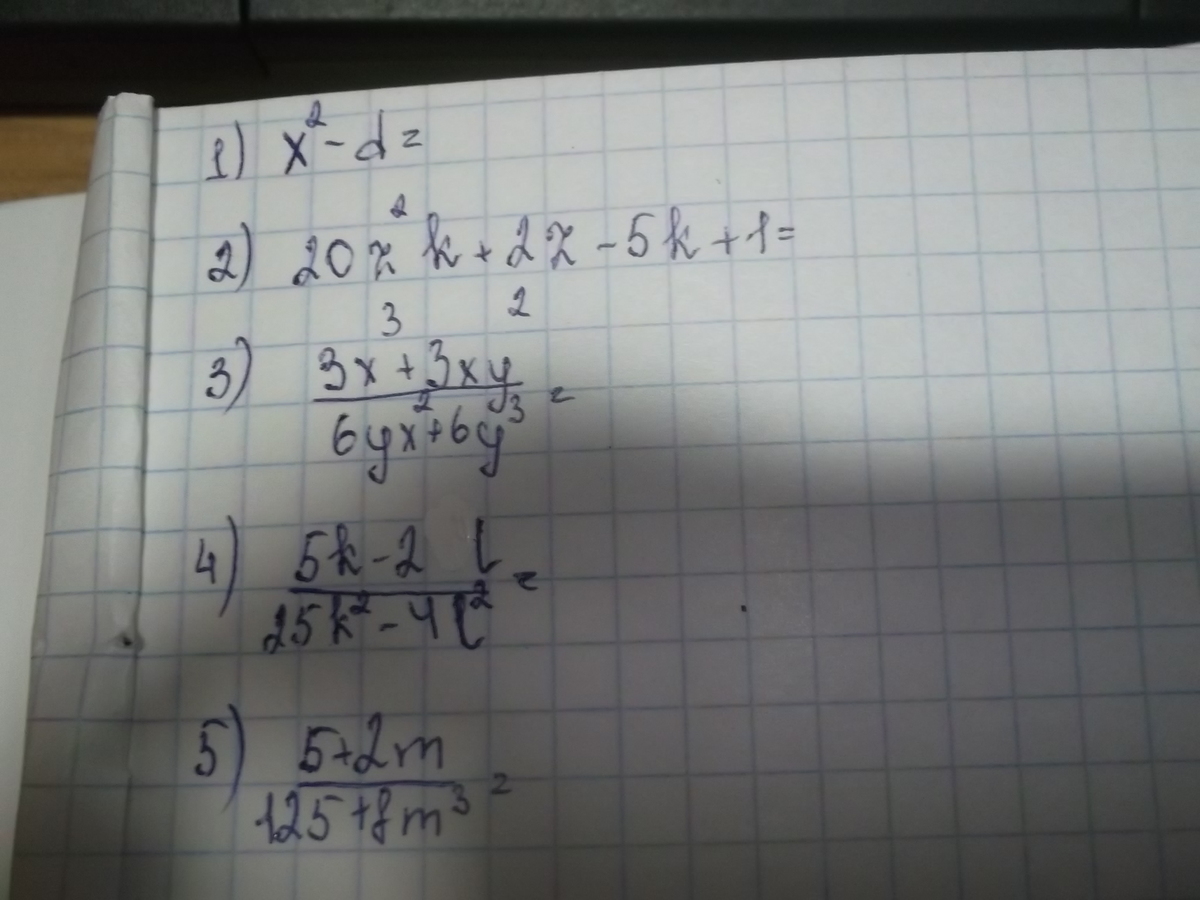 1) x² - d =
2) 20z²k + 2z - 5k + 1 =
3 2
3) 3x + 3xy
6yx² + 6y³ =
4) 5k - 2 l
25k² - 4l² =
5) 5 + 2m
125 + 8m³ =